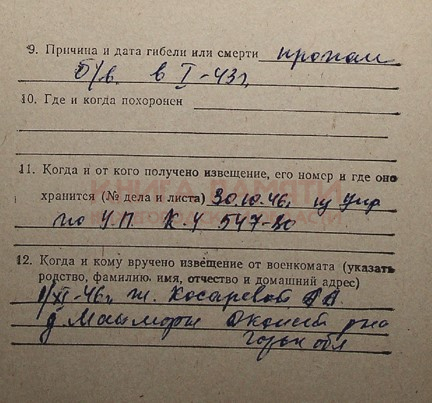 9. Причина и дата гибели или смерти пропал
б/в. в I-43г.
10. Где и когда похоронен
11. Когда и от кого получено извещение, его номер и где оно
хранится (№ дела и листа) 30.10.46. из Упр
по У.П. К.У 547-30
12. Когда и кому вручено извещение от военкомата (указать
родство, фамилию, имя, отчество и домашний адрес)
1/XI-46г. ж. Косаревой
д. р-на
Горьк обл